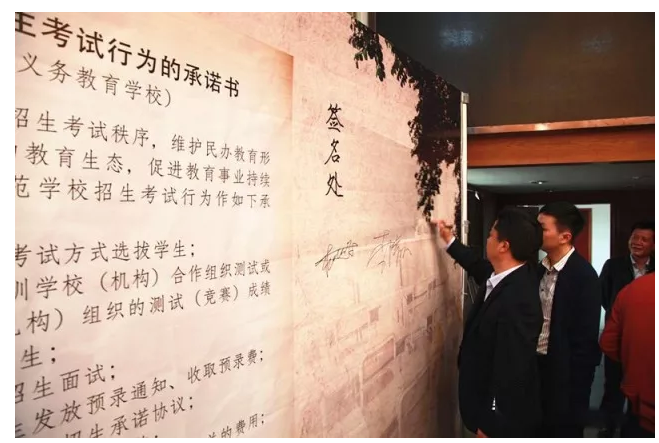 生考试行为的承诺书
义务教育学校）
招生考试秩序，维护民办教育形
教育生态，促进教育事业持续
范学校招生考试行为作如下承
考试方式选拔学生；
训学校（机构）合作组织测试或
机构）组织的测试（竞赛）成绩
生；
招生面试；
发放预录通知、收取预录费；
招生承诺协议；
的费用；
签名处